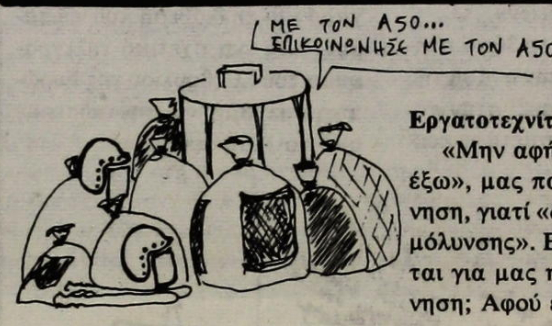 ΜΕ ΤΟΝ Α50...
ΕΠΙΚΟΙΝΩΝΗΣΕ ΜΕ ΤΟΝ Α50
Εργατοτεχνίτ
«Μην αφή
έξω», μας πα
νηση, γιατί «
μόλυνσης». Ε
ται για μας τ
νηση; Αφού ε